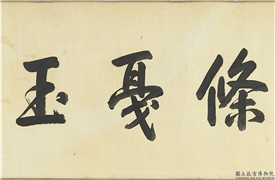 條戞玉
國立故宮博物院